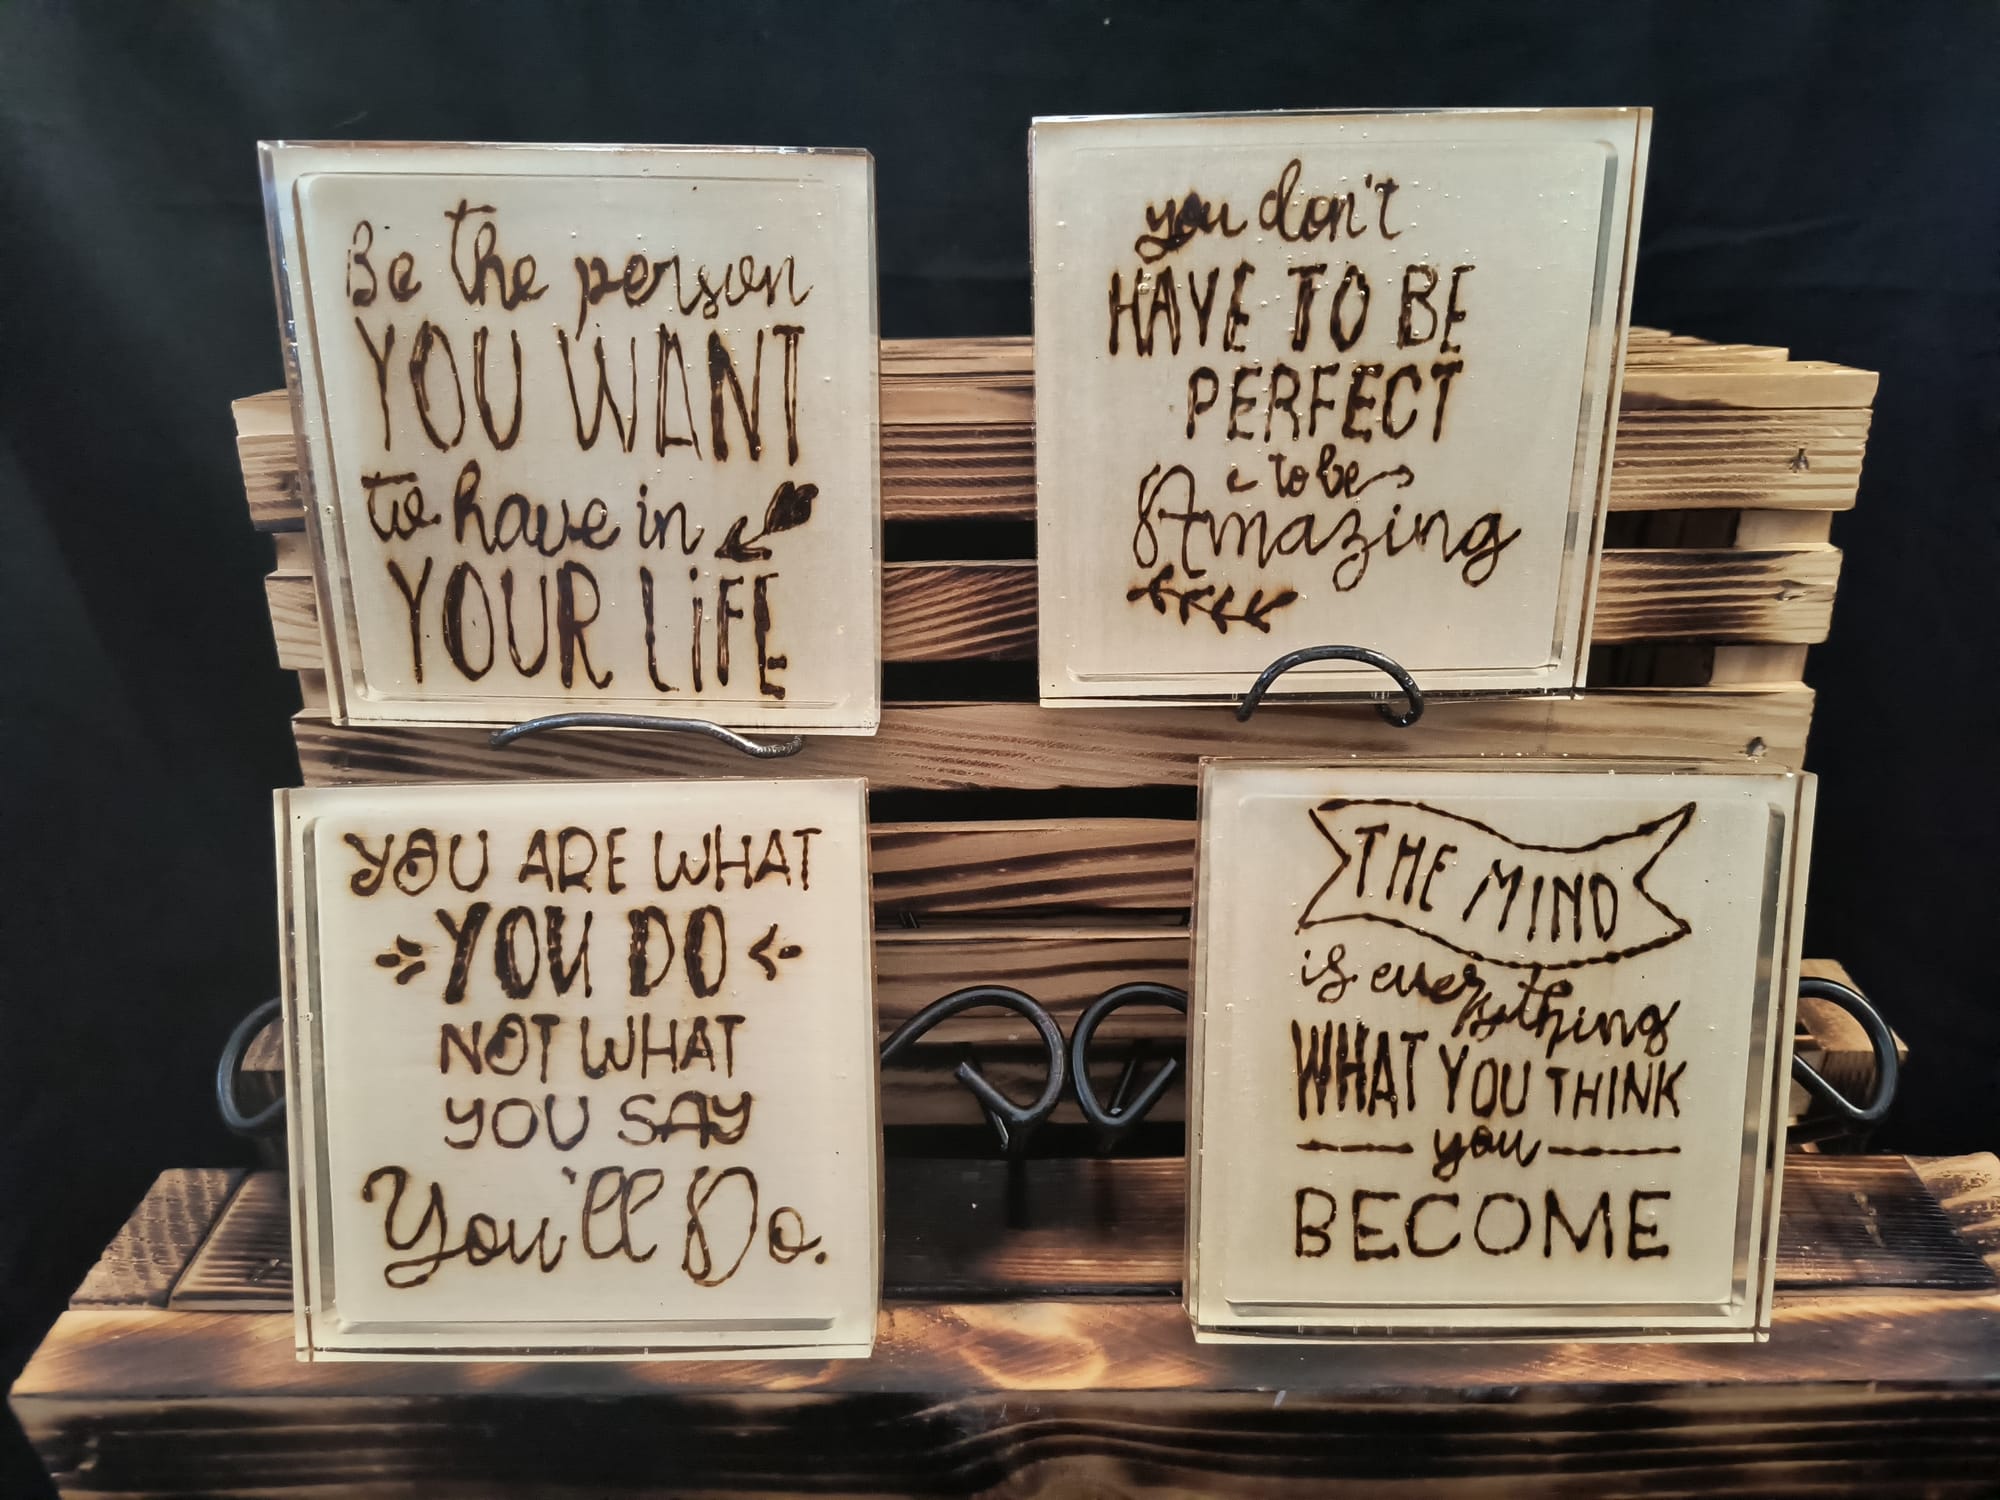 Be the person
YOU WANT
to have in
YOUR LiFE
you don't
HAVE TO BE
PERFECT
to be
Amazing
YOU ARE WHAT
YOU DO
NOT WHAT
YOU SAY
You'll Do.
THE MIND
is everything
WHAT YOU THINK
you
BECOME